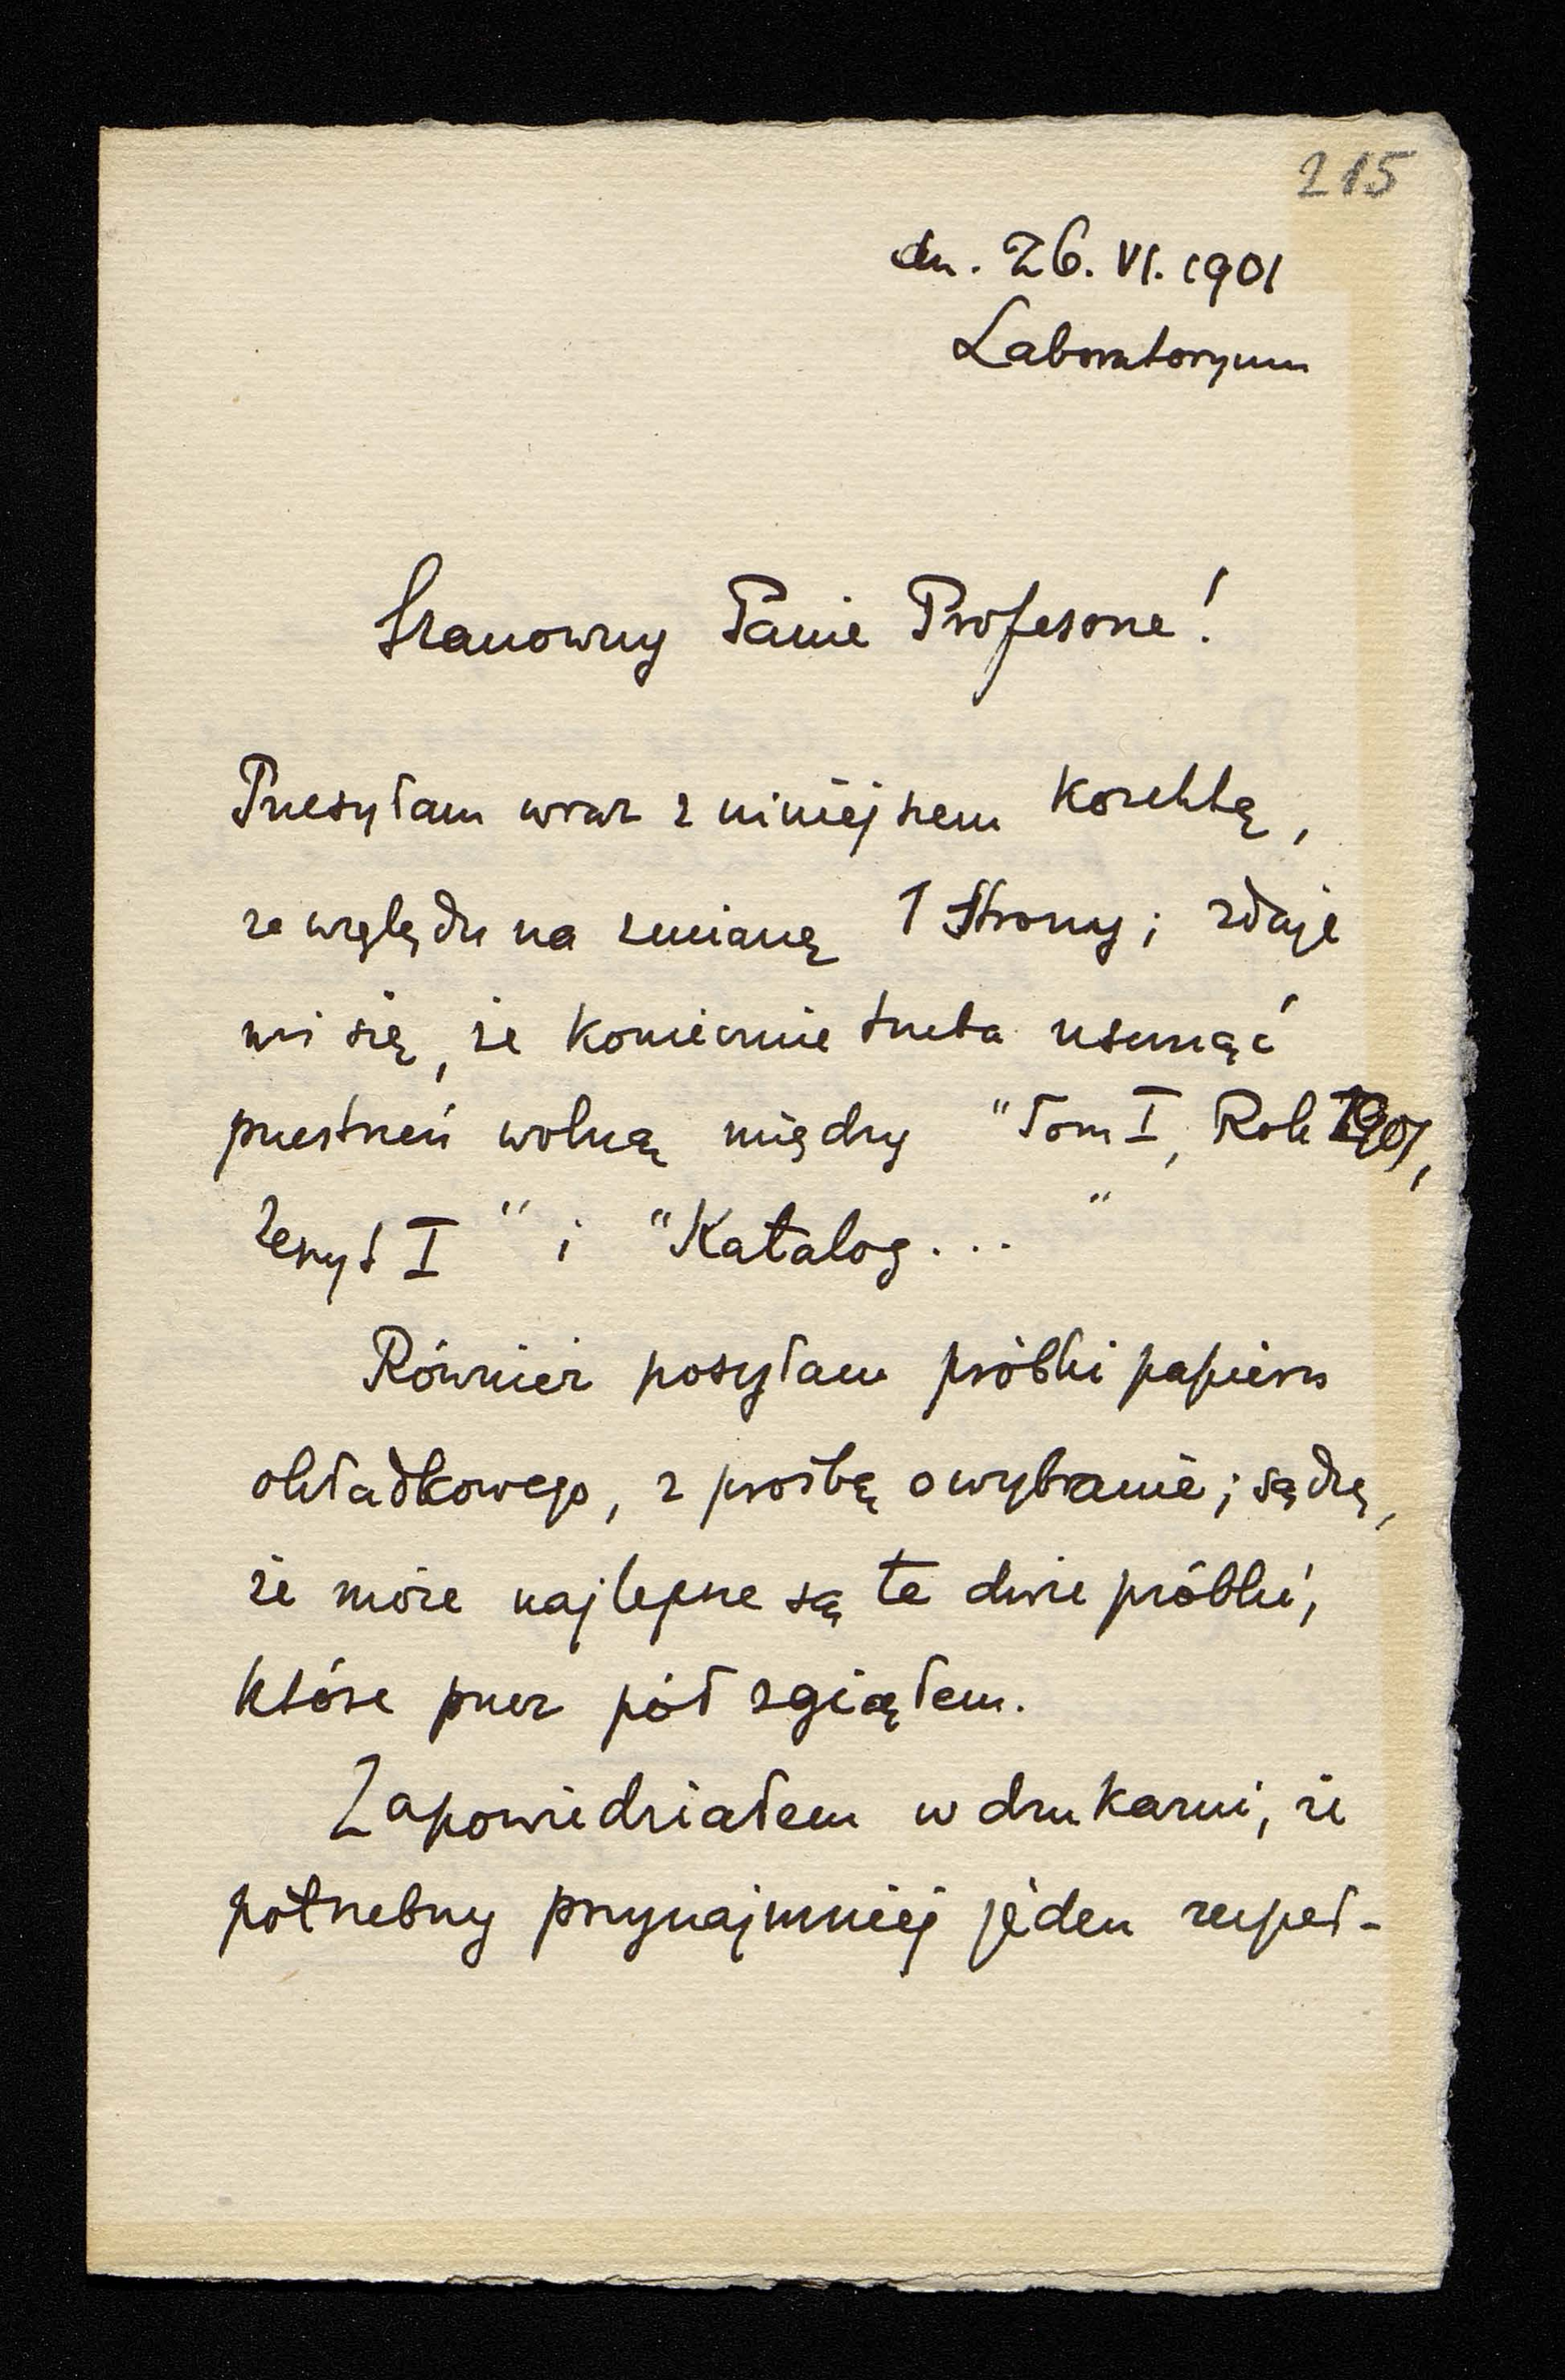 215
dn. 26. VI. 1901
Laboratoryum
Szanowny Panie Profesorze!
Przesyłam wraz z niniejszem korektę,
ze względu na zmianę 1 strony; zdaje
mi się, że koniecznie trzeba usunąć
przestrzeń wolną między "Tom I, Rok 1901,
Zeszyt I" i "Katalog..."
Również posyłam próbki papieru
okładkowego, z prośbą o wybranie; sądzę,
że może najlepsze są te dwie próbki,
które przez pół zgiąłem.
Zapowiedziałem w drukarni, że
potrzebny przynajmniej jeden zeszet-